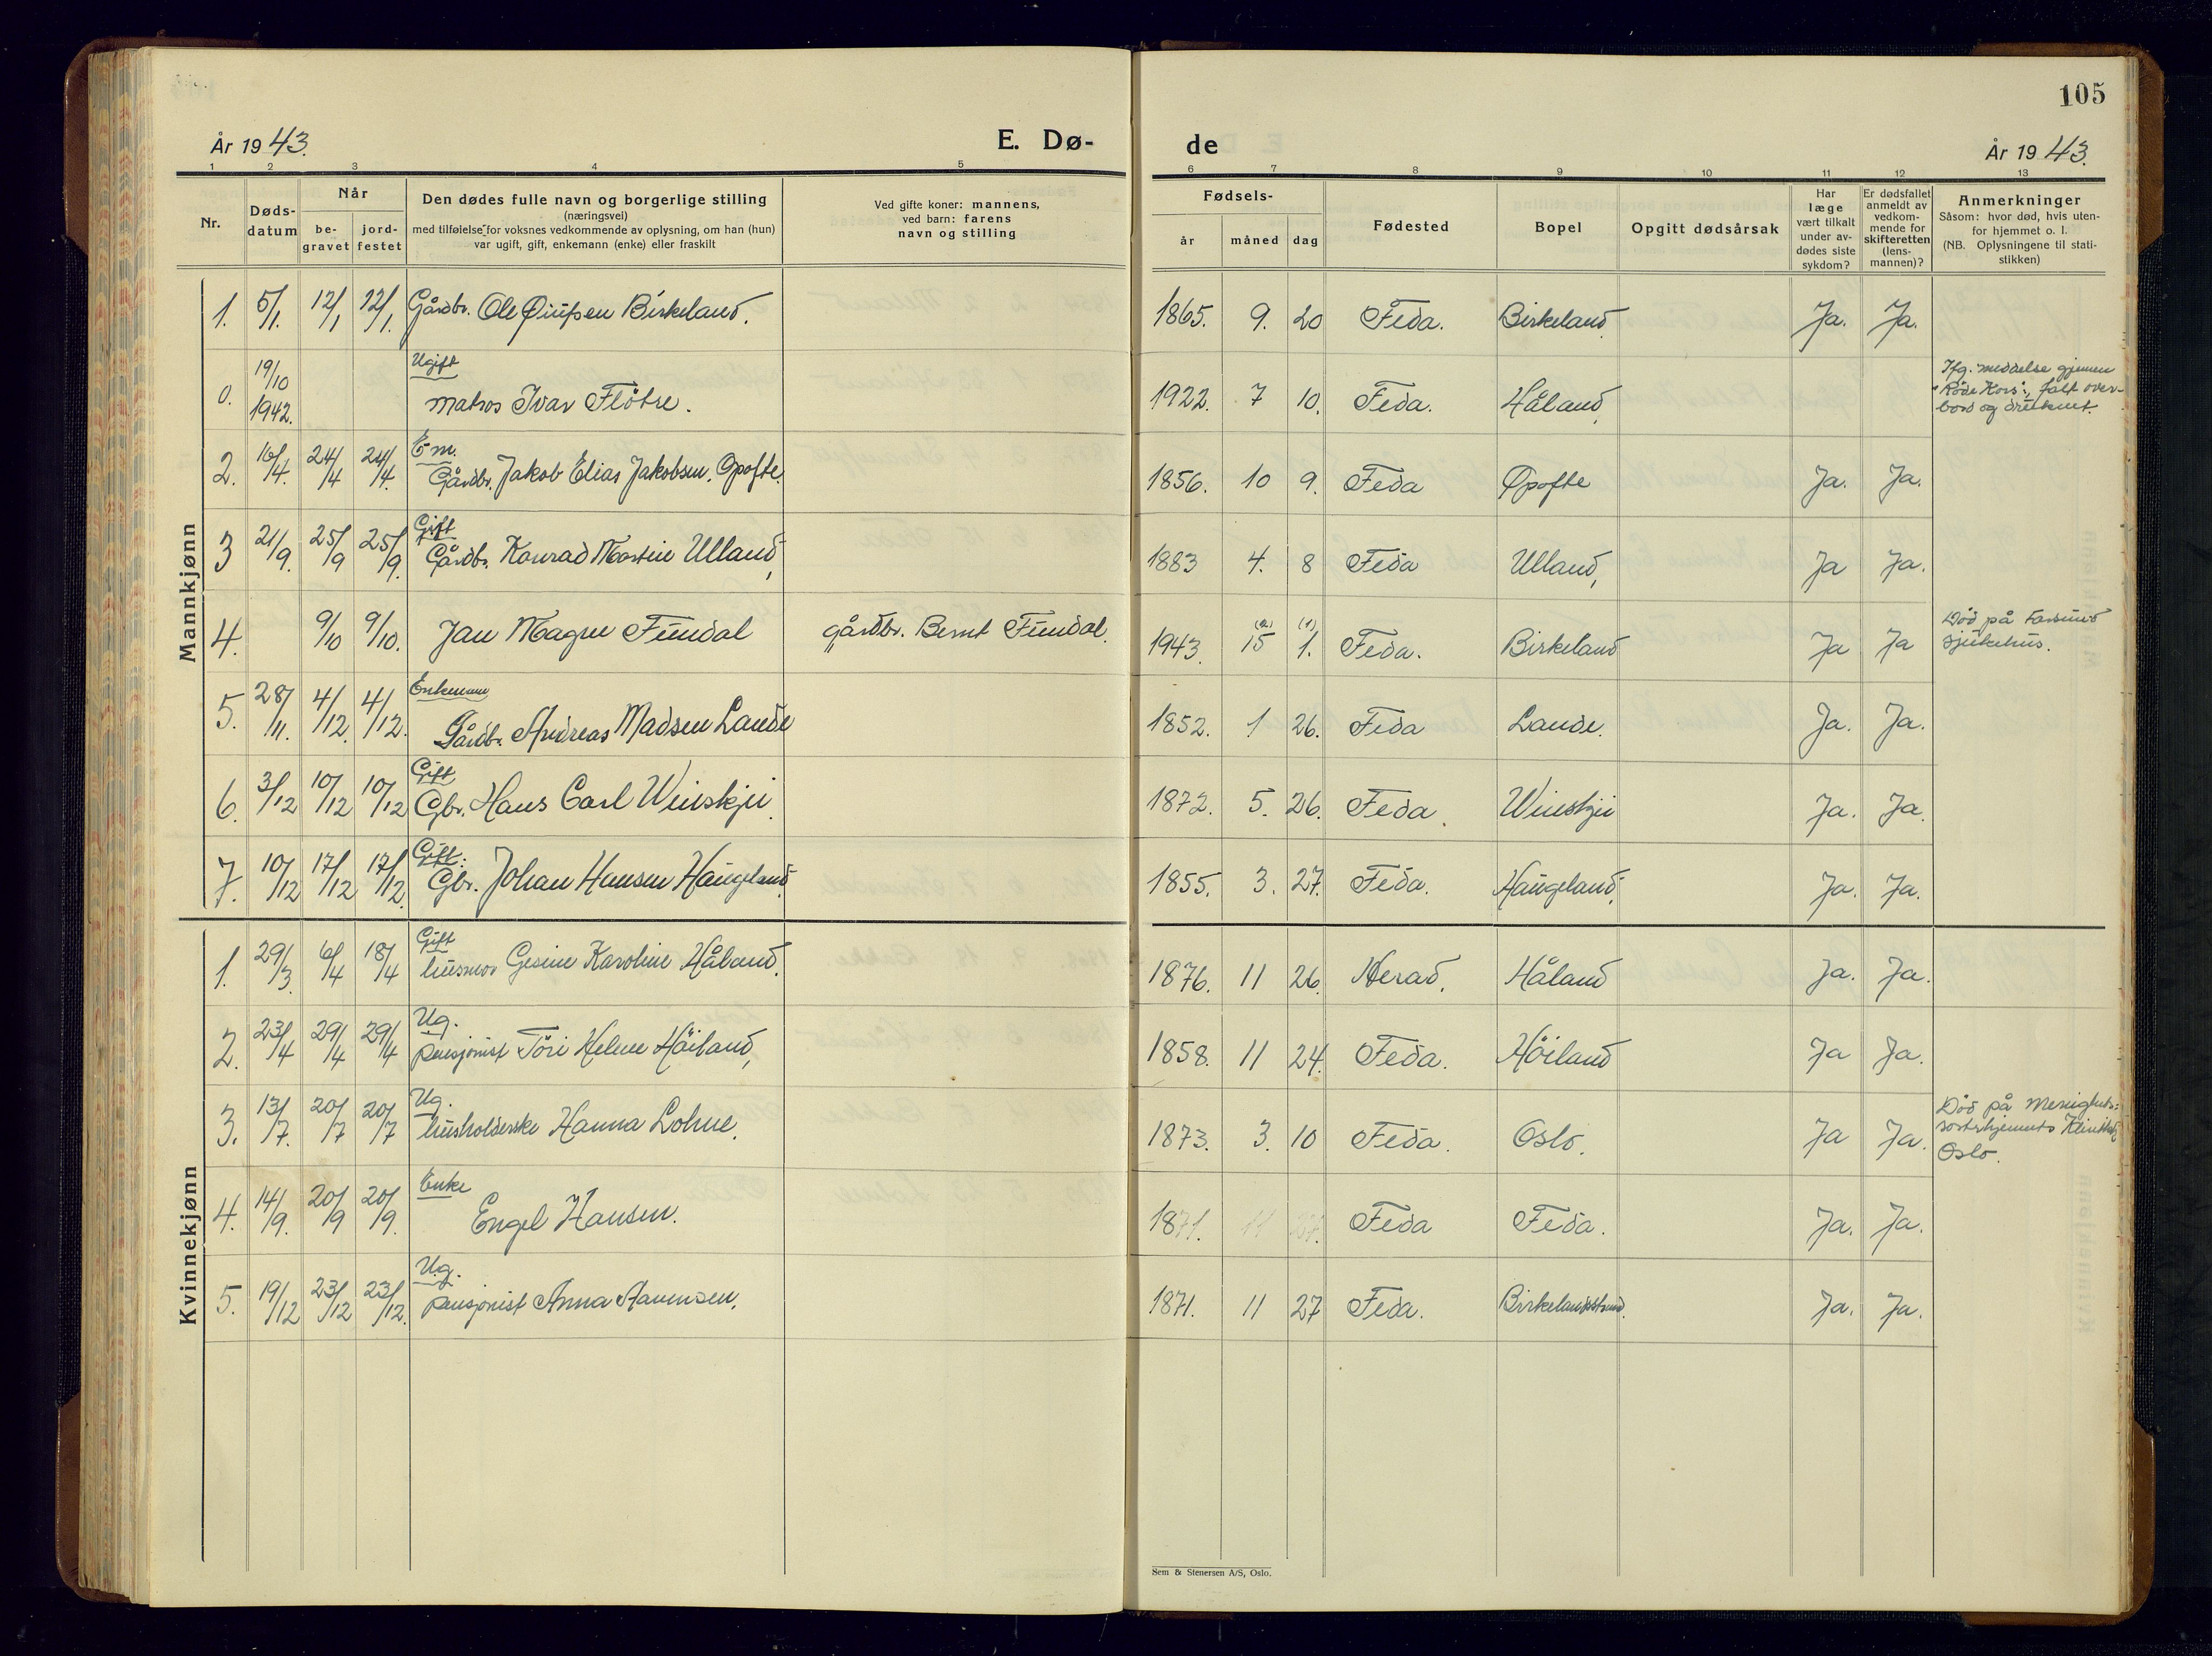 105
År 1943. E. Dø- de År 1943.
1 2 3 4 5 6 7 8 9 10 11 12 13
Nr.
Døds-
datum
Når
be-
gravet
jord-
festet
Den dødes fulle navn og borgerlige stilling
(næringsvei)
med tilføielse for voksnes vedkommende av oplysning, om han (hun)
var ugift, gift, enkemann (enke) eller fraskilt
Ved gifte koner: mannens,
ved barn: farens
navn og stilling
Fødsels-
år måned dag
Fødested
Bopel
Opgitt dødsårsak
Har
læge
vært tilkalt
under av-
dødes siste
sykdom?
Er dødsfallet
anmeldt av
vedkom-
mende for
skifteretten
(lens-
mannen)?
Anmerkninger
Såsom: hvor død, hvis uten-
for hjemmet o. l.
(NB. Oplysningene til stati-
stikken)
Mannkjønn
1. 5/1. 12/1 12/1. Gårdbr. Ole Birkeland. 1865. 9. 20 Feda. Birkeland. Ja. Ja.
Ugift
0. 19/10 1942. Matros Ivar Flötre. 1922. 7 10. Feda. Håland.
Ifg. meddelse gjennem
"Röde Kors", falt over-
bord og druknet.
Em.
2. 16/4. 24/4 24/4. Gårdbr. Jakob Elias Jakobsen Opofte. 1856. 10 9. Feda Opofte Ja. Ja.
Gift
3 21/9. 25/9 25/9. Gårdbr. Konrad Martin Ulland, 1883 4. 8 Feda Ulland, Ja Ja.
4. 9/10 9/10. Jan Magne Fundal gårdbr. Bernt Fundal. 1943. 15 1. Feda. Birkeland Ja Ja
Död på Farsund
sjukehus.
Enkemann
5. 28/11. 4/12. 4/12. Gårdb. Andreas Madsen Lande 1852. 1 26. Feda Lande. Ja. Ja.
Gift
6. 3/12 10/12 10/12 Gbr. Hans Carl Winskjei. 1872. 5. 26. Feda. Winskjei Ja. Ja.
Gift:
7. 10/12 17/12 17/12. Gbr. Johan Hansen Haugeland. 1855. 3. 27. Feda. Haugeland. Ja. Ja.
Kvinnekjønn
Gift
1. 29/3. 6/4 18/4 husmor Gesine Karoline Håland. 1876. 11 26. Herad. Håland Ja. Ja.
Ug.
2. 23/4 29/4 29/4 pensjonist Töri Helene Höiland, 1858. 11 24. Feda. Höiland Ja Ja.
Ug.
3. 13/7. 20/7 20/7 husholderske Hanna Lohne. 1873. 3. 10 Feda. Oslo. Ja Ja.
Död på Menighets-
Oslo.
Enke
4. 14/9. 20/9 20/9. Engel Hansen. 1871. 11 27. Feda Feda. Ja. Ja.
Ug.
5. 19/12 23/12 23/12. pensjonist Anna Aavensen. 1871. 11 27 Feda. Birkelandstrand. Ja. Ja.
Sem & Stenersen A/S, Oslo.